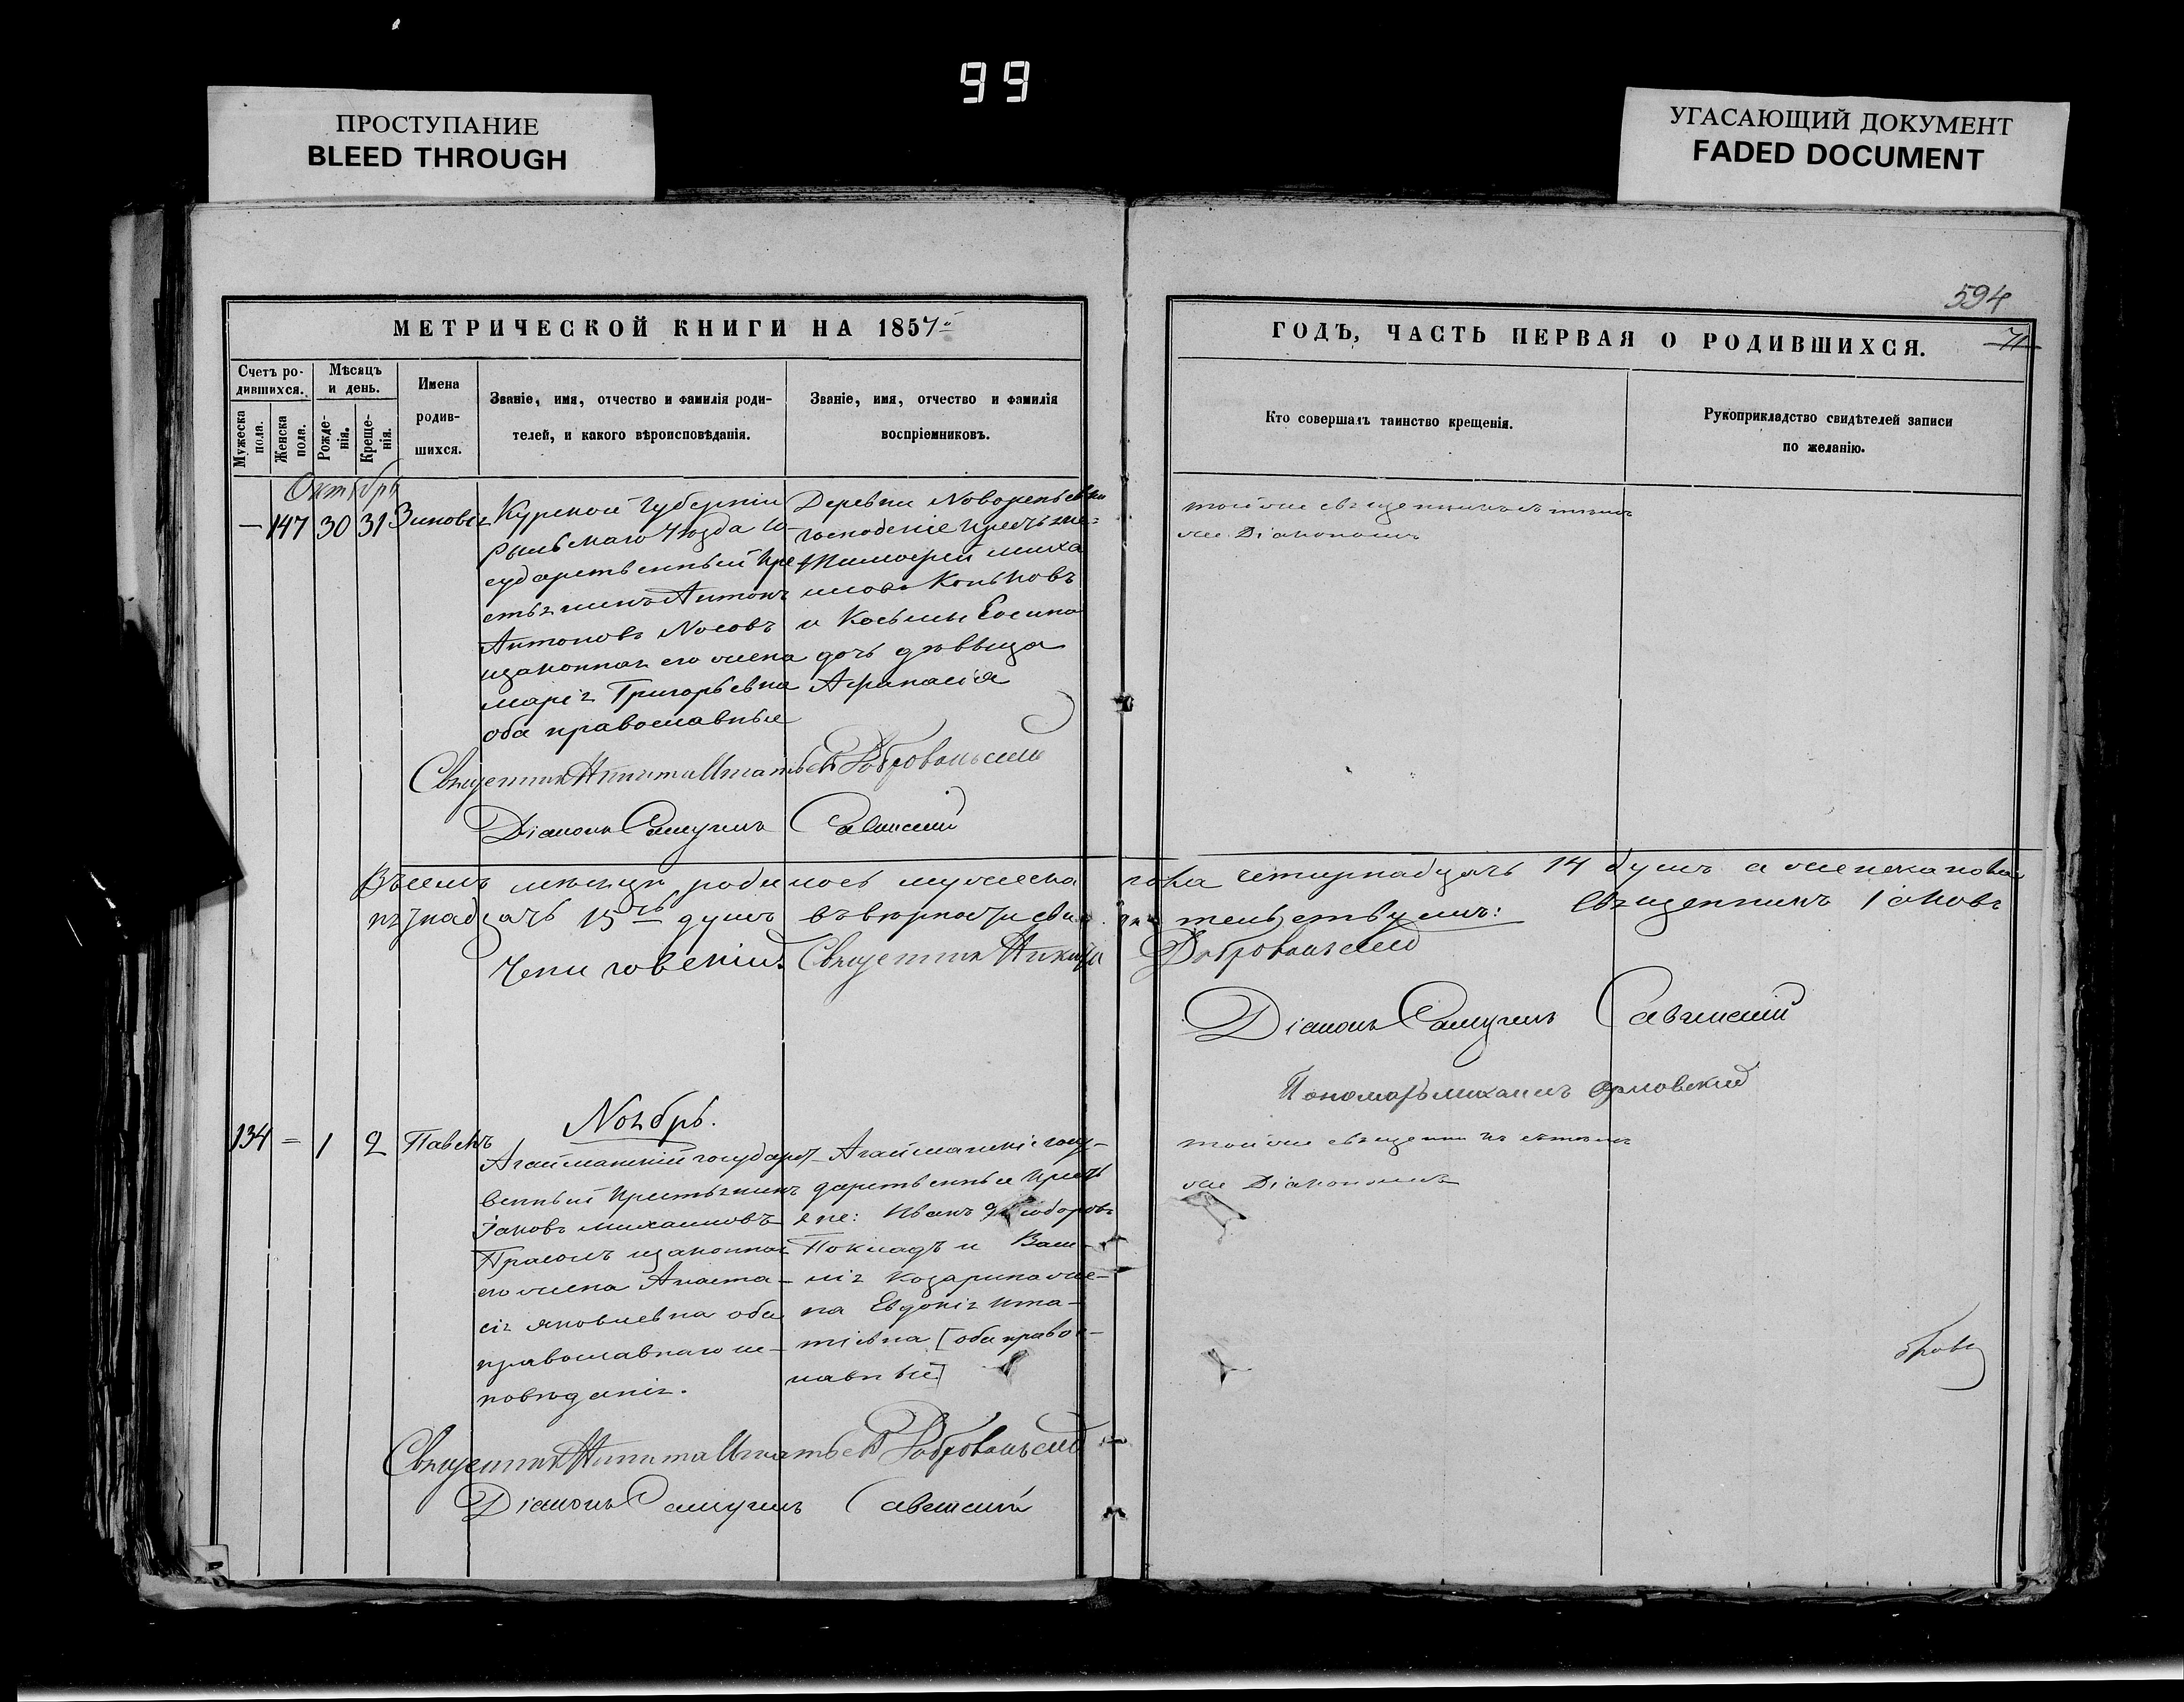 99
ПРОСТУПАНИЕ
BLEED THROUGH
УГАСАЮЩИЙ ДОКУМЕНТ
FADED DOCUMENT
594
71
МЕТРИЧЕСКОЙ КНИГИ НА 1857й
ГОДЪ, ЧАСТЬ ПЕРВАЯ О РОДИВШИХСЯ.
Счетъ ро-
дившихся.
Мужеска
пола.
Женска
пола.
Мѣсяцъ
и день.
Рожде-
нія.
Креще-
нія.
Имена
родив-
шихся.
Званіе, имя, отчество и фамилія роди-
телей, и какого вѣроисповѣданія.
Званіе, имя, отчество и фамилія
воспріемниковъ.
Кто совершалъ таинство крещенія.
Рукоприкладство свидѣтелей записи
по желанію.
Октябрь
— 147 30 31 Зиновія
Курской Губерніи
Рыльскаго Уѣзда Го-
сударственный Кре
стьянинъ Антонъ
Антоновъ Носовъ
изаконная его жена
Марія Григорьевна
оба православные
Деревни
Тимофей Миха
иловъ Коньковъ
и Косьмы
дочь дѣвица
Афанасія
тойже священникъ стѣмъ
же Діакономъ
Священник Никита Игнатьев Добровольский
Діаконъ Самуилъ Савинский
Всемъ месяце родилось мужеска пола четырнадцать 14 душъ а женска пола
пятнадцать 15ть душъ въ верности свидетельствуемъ: Священникъ Іаковъ
Священник Никита Добровольский
Діаконъ Самуилъ Савинский
Пономарь Михаилъ Орловский
Ноябрь.
134 — 1 2 Павелъ
Агайманскій государст-
венный Крестьянинъ
Іаковъ Михаиловъ
изаконная
его жена Анаста-
сія Яковлевна оба
православнаго ис-
поведанія.
Агайманскіе госу-
дарственные Кресть
яне: Иванъ Феодоровъ
Покладъ и Васи-
лія Козарина же-
на Евдокія Игна-
тіевна [оба правос-
лавные]
тойже священникъ стѣмъ
же Діакономъ
Священник Никита Игнатьев Добровольский
Діаконъ Самуилъ Савинский